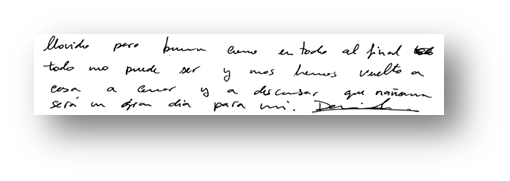 llovido pero bueno como en todo al final
todo no puede ser y nos hemos vuelto a
casa a cenar y a descansar que mañana
será un gran dia para mi.